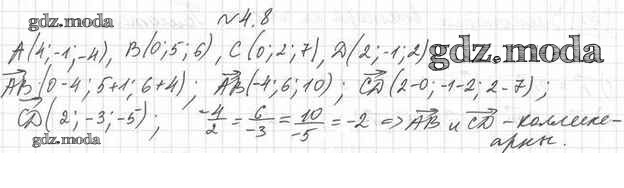 №4.8
gdz.moda
A(4;-1;-4), B(0;5;6), C(0;2;7), D(2;-1;2) gdz.moda
AB(0-4; 5+1; 6+4); AB(-4; 6; 10); CD(2-0; -1-2; 2-7);
CD(2; -3; -5); -4/2 = 6/-3 = 10/-5 = -2 => AB и CD - коллине-
gdz.moda арны.